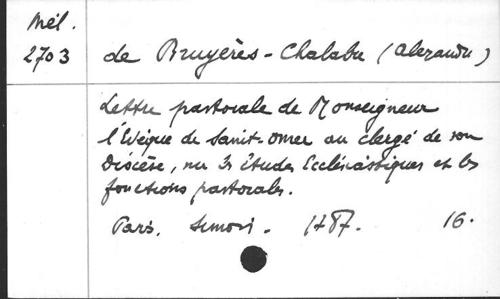 Mél.
2703
de Bruyères-Chalabre (Alexandre)
Lettre pastorale de Monseigneur
l'Evêque de Saint-Omer au clergé de son
Diocèse, sur les études Ecclésiastiques et les
fonctions pastorales.
Paris. Simon. 1787. 16.